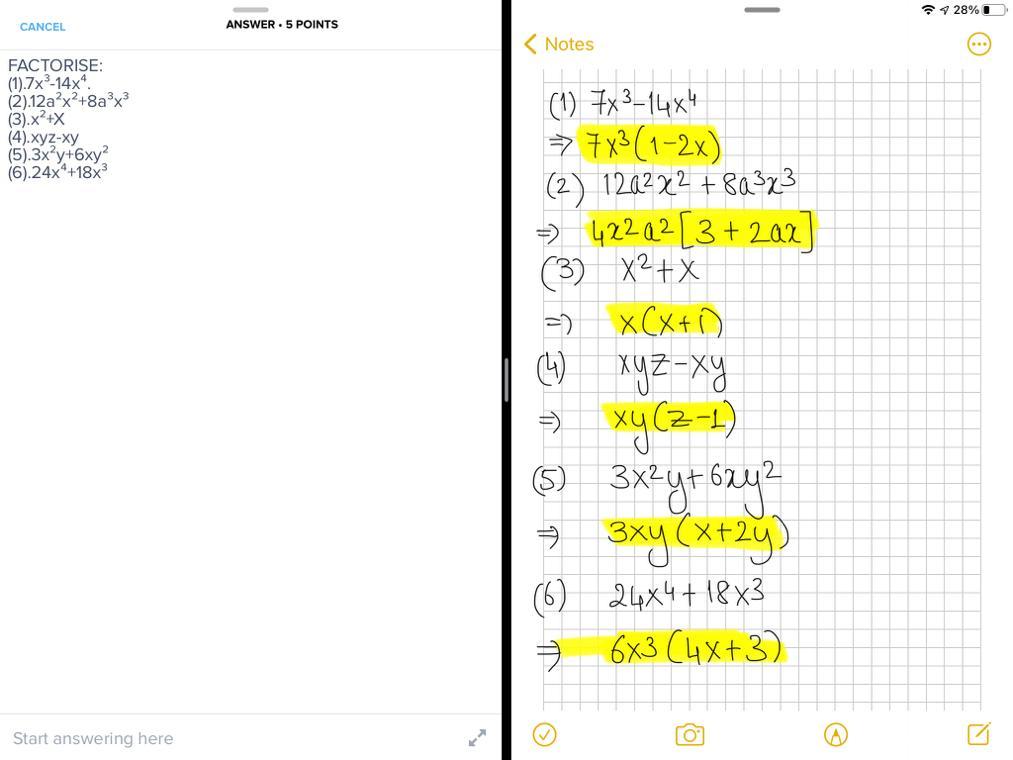 28%
CANCEL
ANSWER • 5 POINTS
FACTORISE:
(1).7x³-14x⁴.
(2).12a²x²+8a³x³
(3).x²+X
(4).xyz-xy
(5).3x²y+6xy²
(6).24x⁴+18x³
Start answering here
Notes
(1) 7x³-14x⁴
⇒ 7x³(1-2x)
(2) 12a²x² + 8a³x³
⇒ 4x²a²[3 + 2ax]
(3) x²+x
⇒ x(x+1)
(4) xyz-xy
⇒ xy(z-1)
(5) 3x²y+6xy²
⇒ 3xy(x+2y)
(6) 24x⁴+18x³
⇒ 6x³(4x+3)